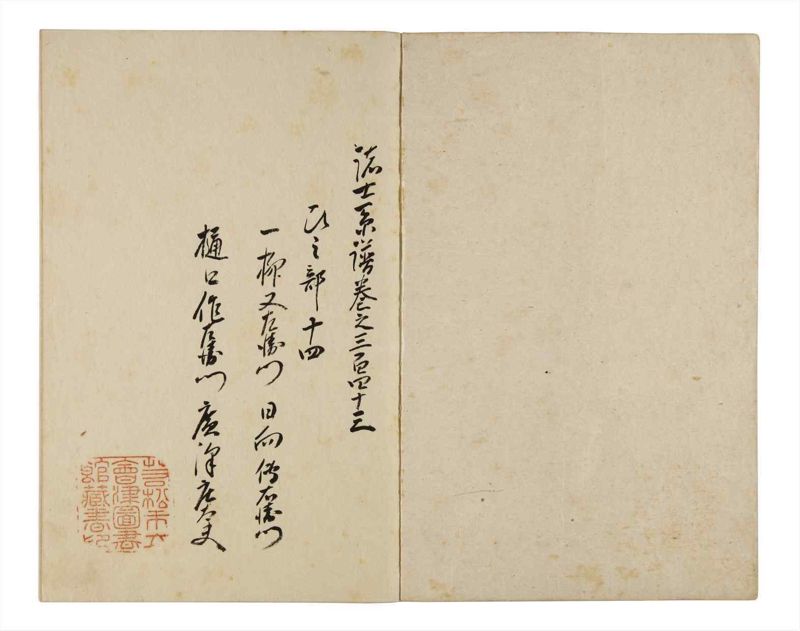 諸士系譜巻之三百四十三
ひ之部十四
一柳又左衛門 日向傳右衛門
樋口作左衛門 廣澤庄大夫
若松市立
會津圖書
館藏書印